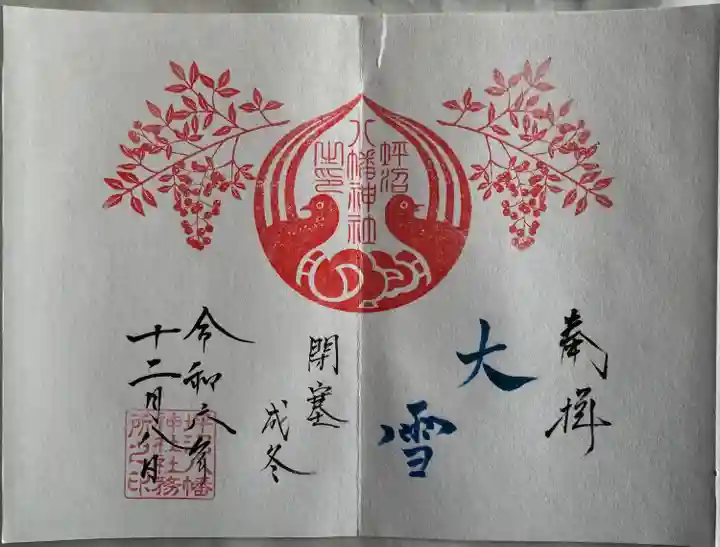 坪沼
八幡神社
之印
奉拝
大
雪
閉塞
成冬
令和六年
十二月八日
坪沼八幡
神社社務
所之印